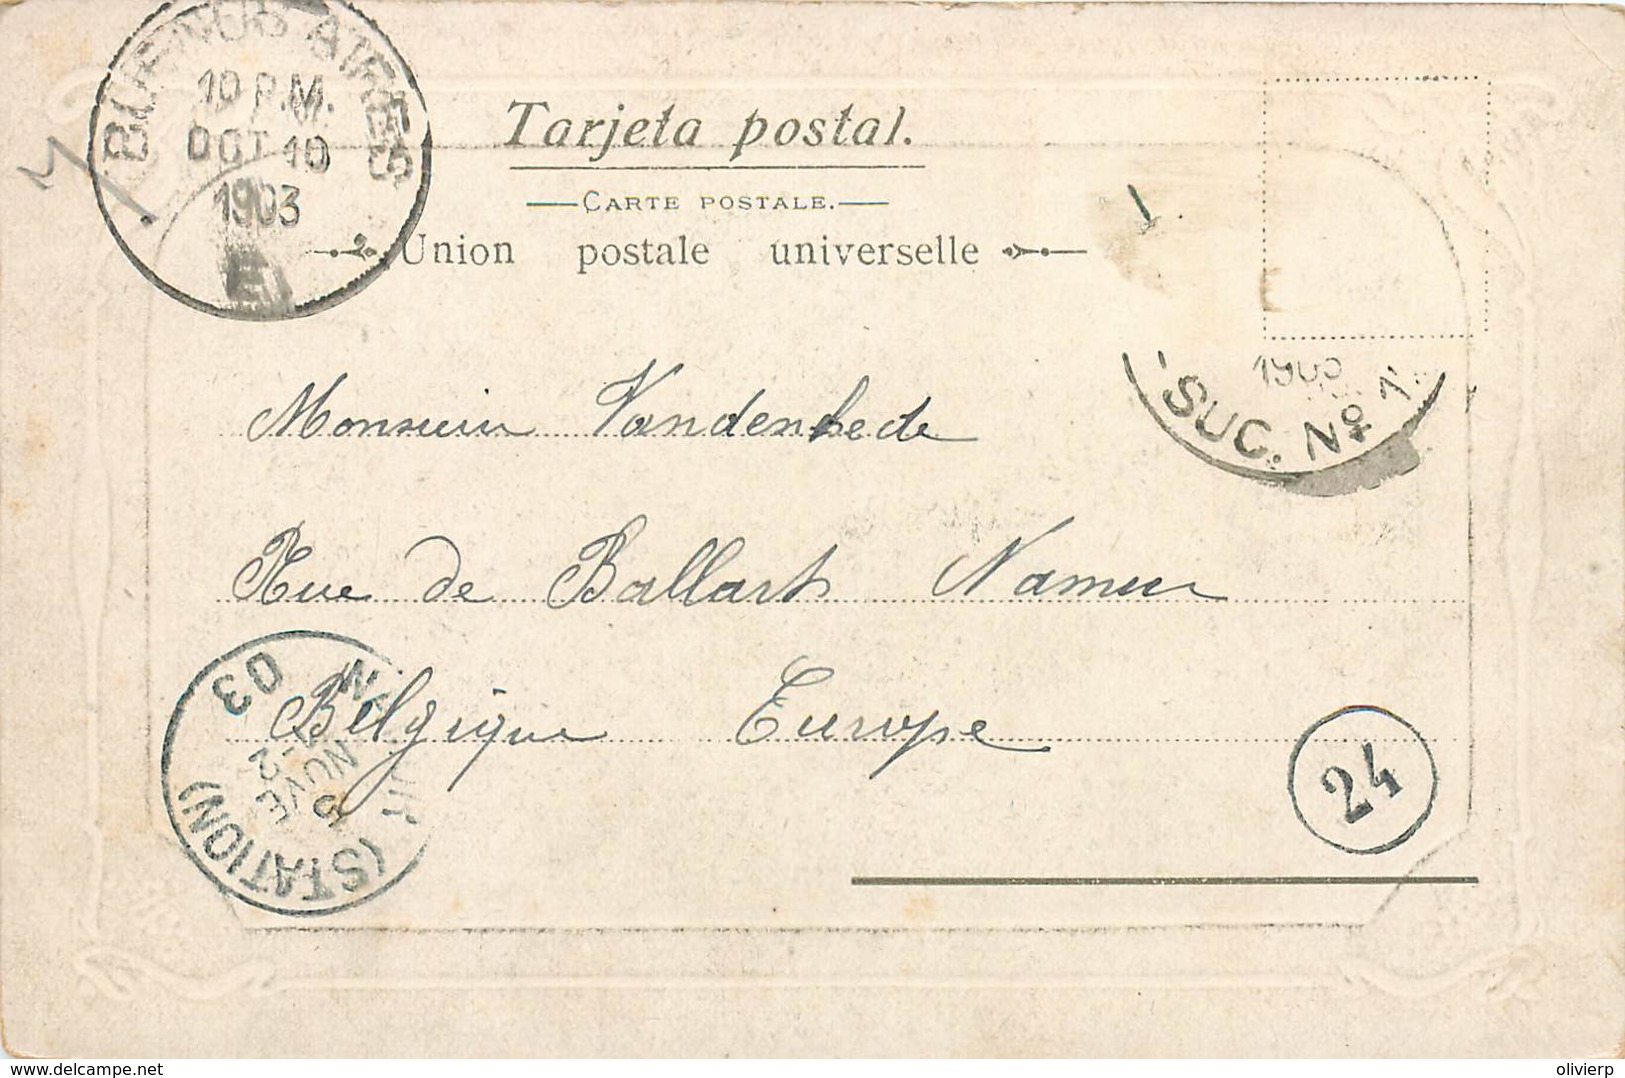 BUENOS AIRES
10 P.M.
OCT 10
1903
E
Tarjeta postal.
CARTE POSTALE.
Union postale universelle
1903
SUC. Nº 1
Monsieur Vandenhede
Rue de Ballart Namur
Belgique Europe
NAMUR (STATION) 03
5
NOVE
24
www.delcampe.net
olivierp